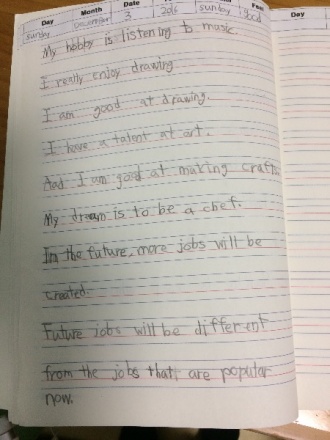 Day Month Date Feel
Sunday December 3 2016 sunday good
My hobby is listening to music.
I really enjoy drawing
I am good at drawing.
I have a talent at art.
And I am good at making craft
My dream is to be a chef.
In the future, more jobs will be
created.
Future jobs will be different
from the jobs that are popular
now.
Day